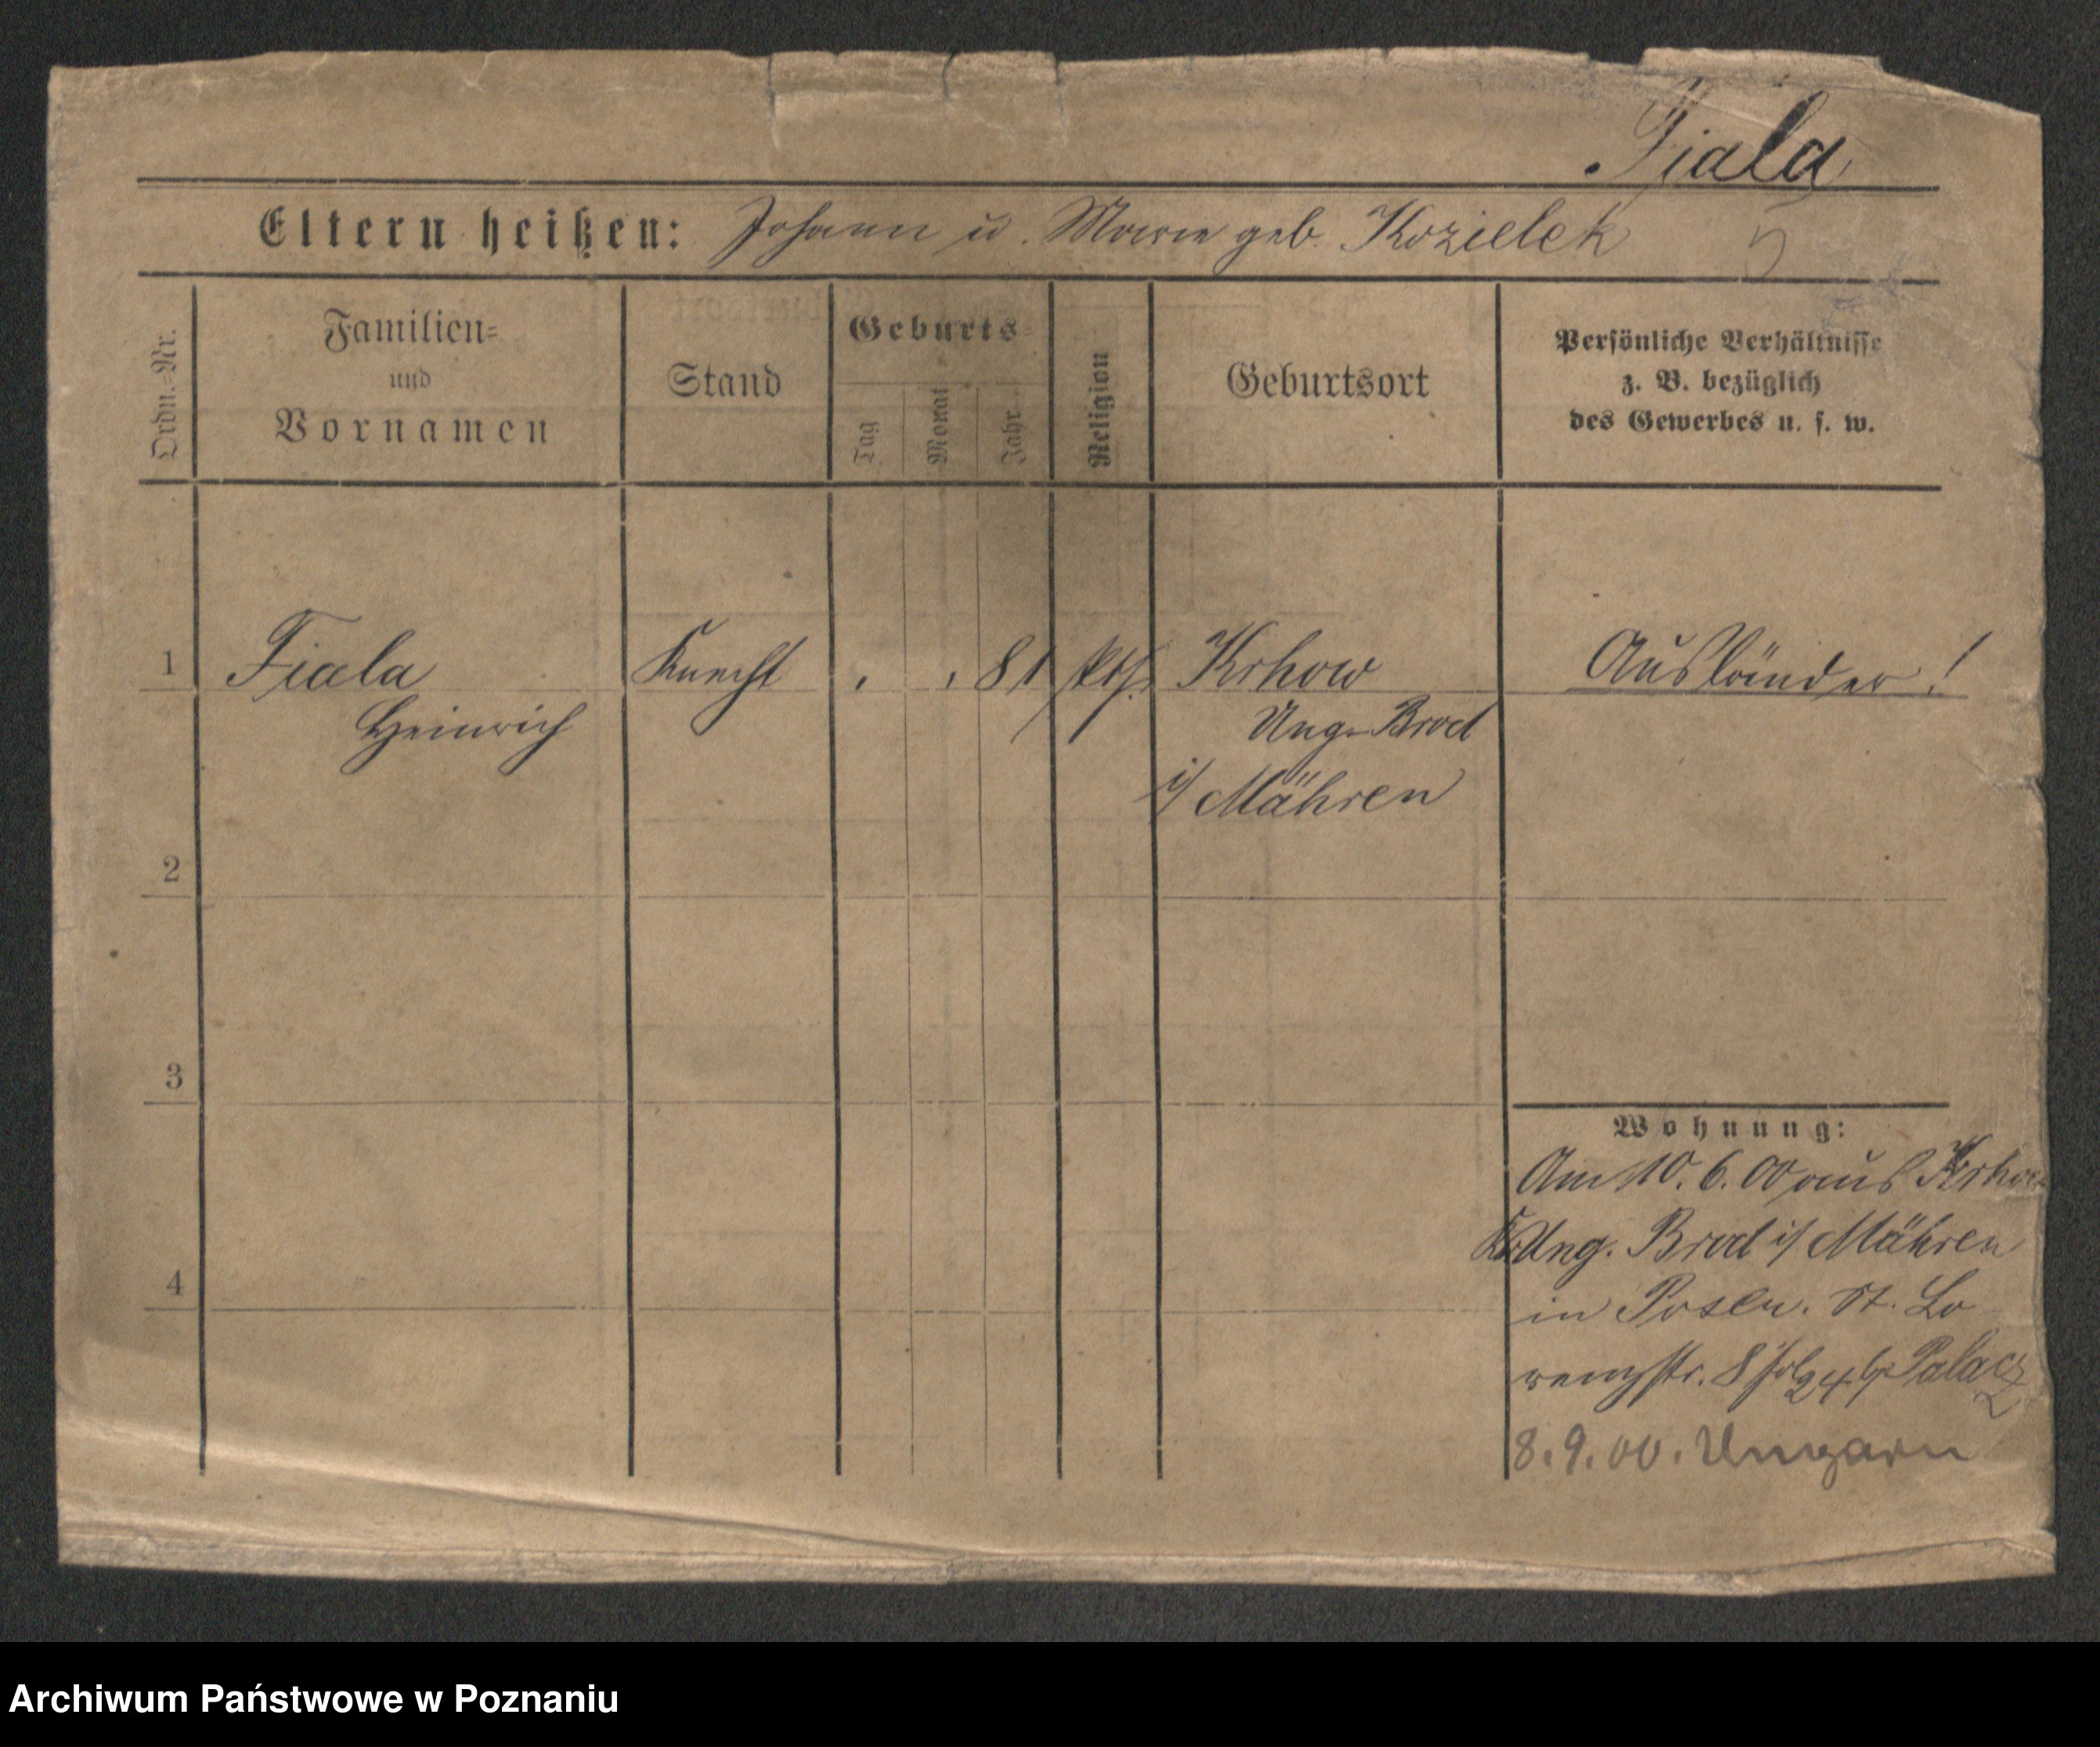 Fiala
Eltern heißen: Johann u. Marie geb. Kozielek
Ordn.=Nr.
Familien=
und
Vornamen
Stand
Geburts=
Tag
Monat
Jahr
Religion
Geburtsort
Persönliche Verhältnisse
z. B. bezüglich
des Gewerbes u. s. w.
1 Fiala Knecht 81 kth. Krhow Ausländer!
Heinrich Ung. Brod
i/ Mähren
2
3
Wohnung:
Am 10. 6. 00 aus Krhow
Kr. Ung. Brod i/ Mähren
4
in Posen. St. Lo
renzstr. 8 b/ Palacz
8. 9. 00. Ungarn
Archiwum Państwowe w Poznaniu